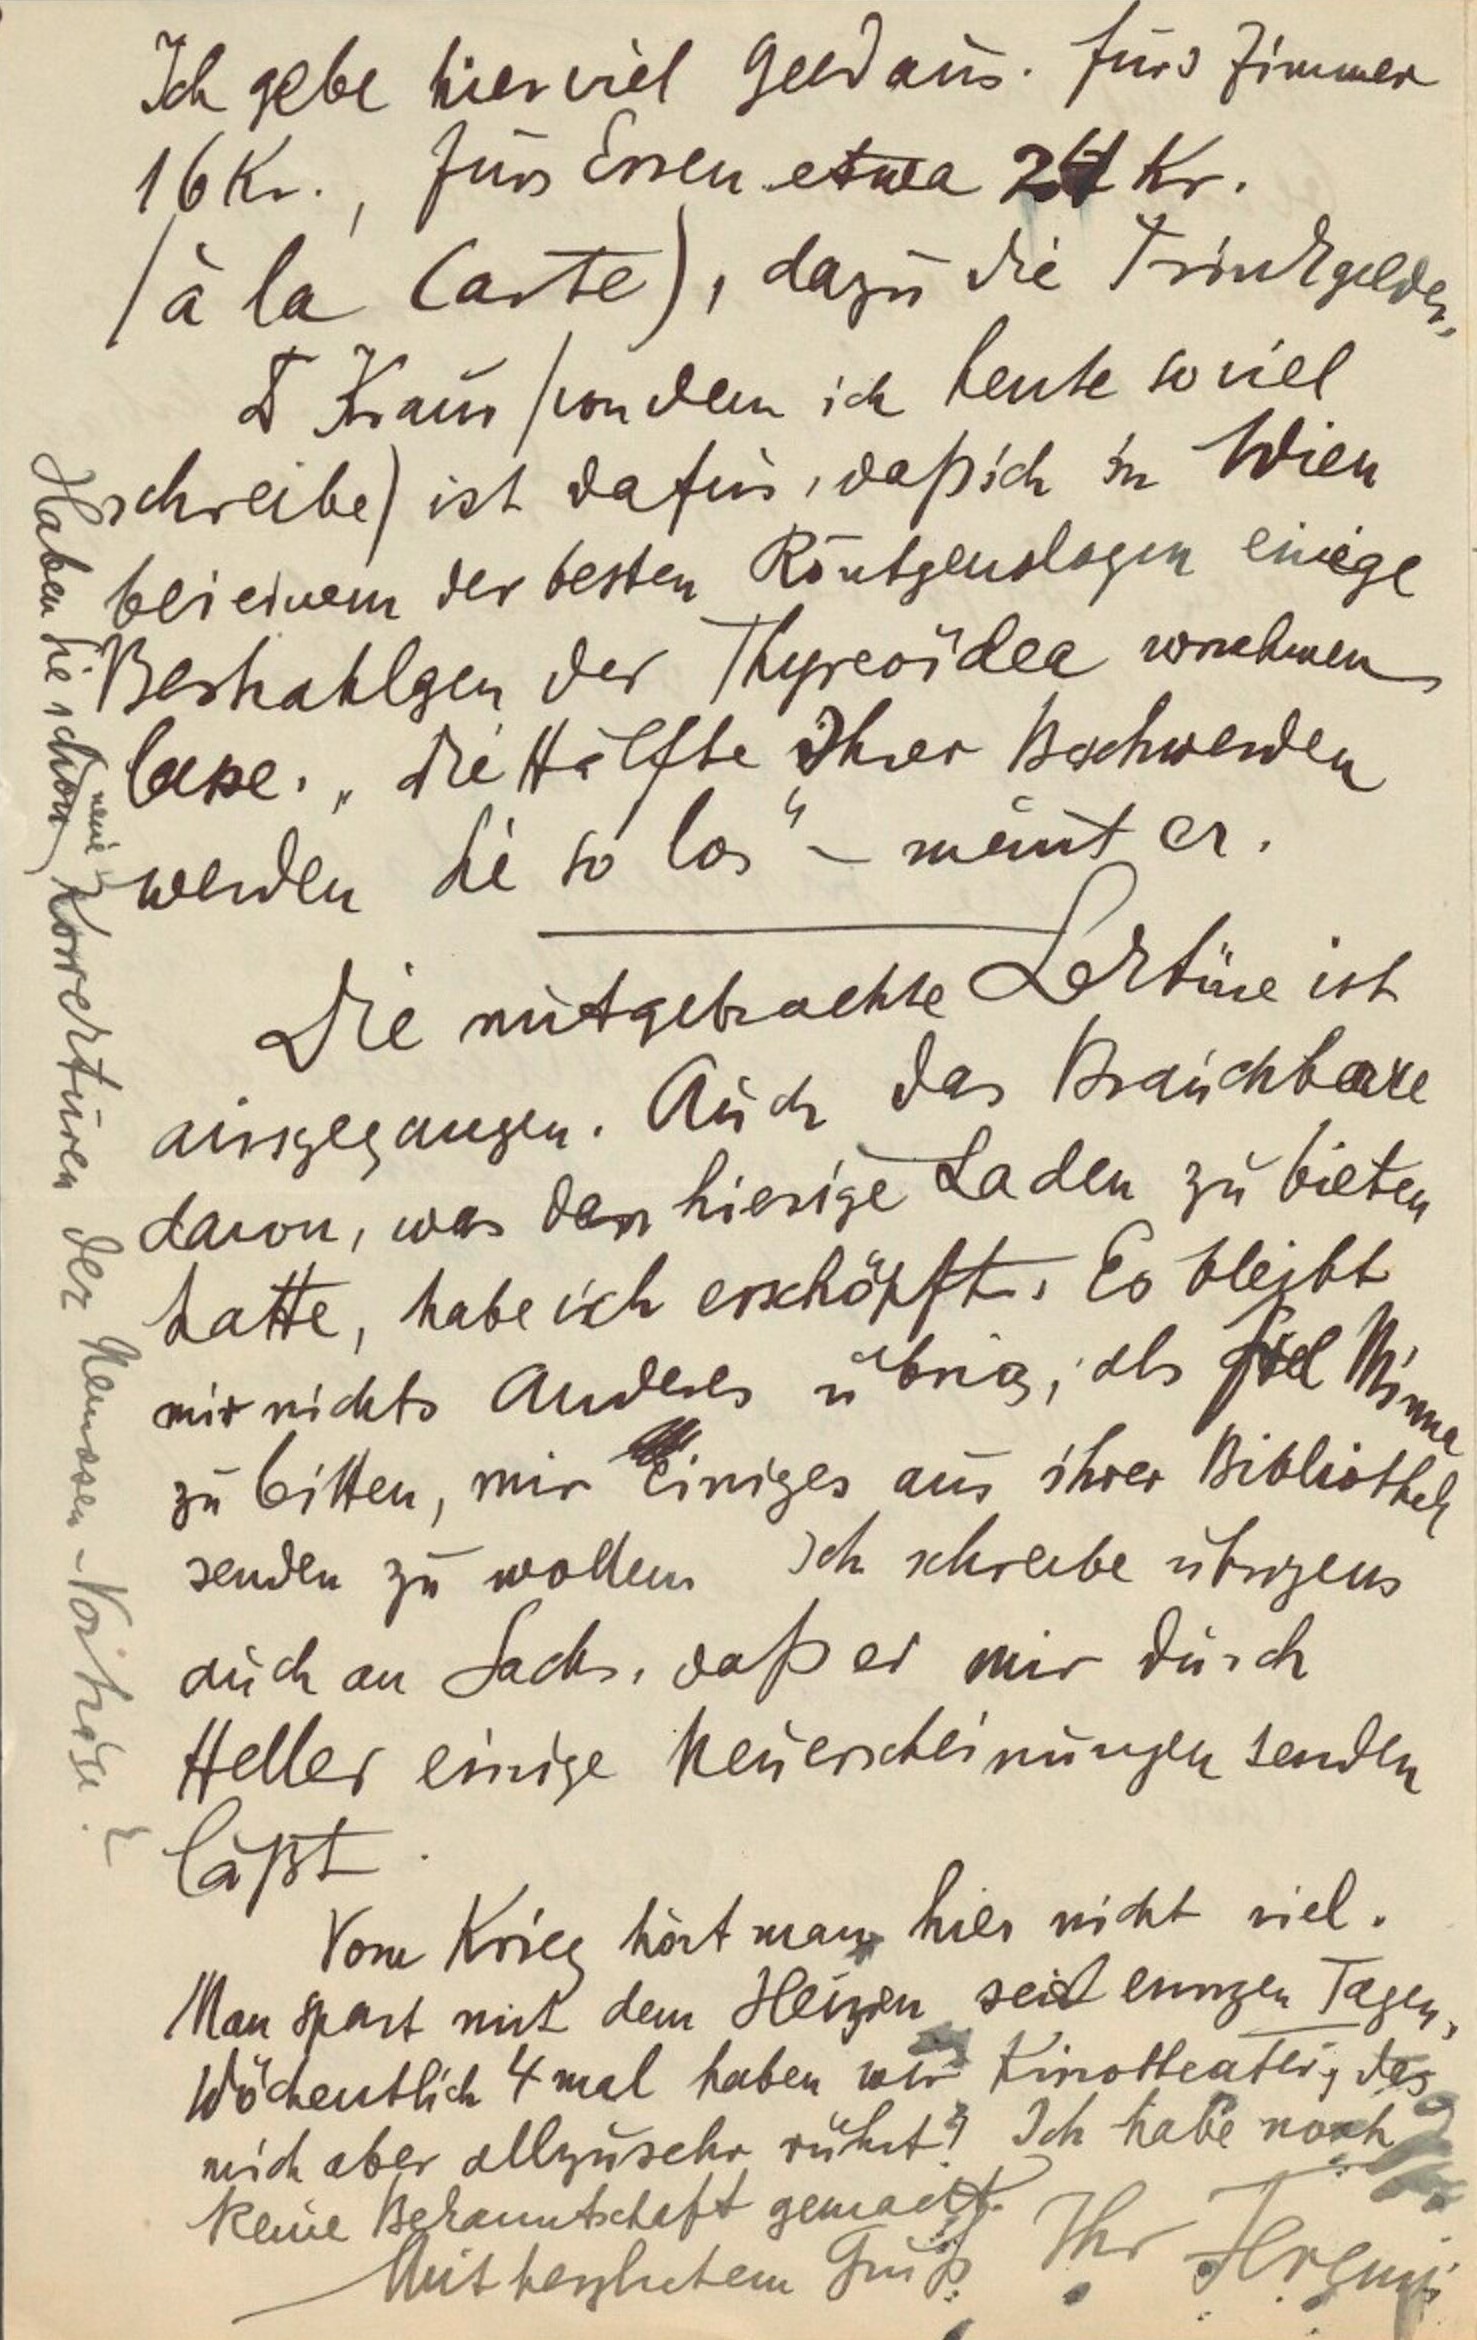 Ich gebe hier viel Geld aus. Fürs Zimmer
16 Kr., fürs Essen etwa 24 Kr.
(à la Carte), dazu die Trinkgelder.
Dr Kraus (von dem ich heute so viel
schreibe) ist dafür, daß ich in Wien
bei einem der besten Röntgenologen einige
Bestrahlgen der Thyreoïdea vornehmen
lasse. „Die Hälfte Ihrer Beschwerden
werden Sie so los“ – meint er.
Die mitgebrachte Lektüre ist
ausgegangen. Auch das Brauchbare
davon, was der hiesige Laden zu bieten
hatte, habe ich erschöpft. Es bleibt
mir nichts Anderes übrig, als Frl Minna
zu bitten, mir Einiges aus ihrer Bibliothek
senden zu wollen. Ich schreibe übrigens
auch an Sachs, daß er mir durch
Heller einige Neuerscheinungen senden
läßt.
Vom Krieg hört man hier nicht viel.
Man spart mit dem Heizen seit einigen Tagen,
Wöchentlich 4 mal haben wir Kinotheater, das
mich aber allzusehr rührt? Ich habe noch
keine Bekanntschaft gemacht.
Mit herzlichem Gruß Ihr
Haben Sie schon neue Korrekturen der Neurosen-Vorträge?